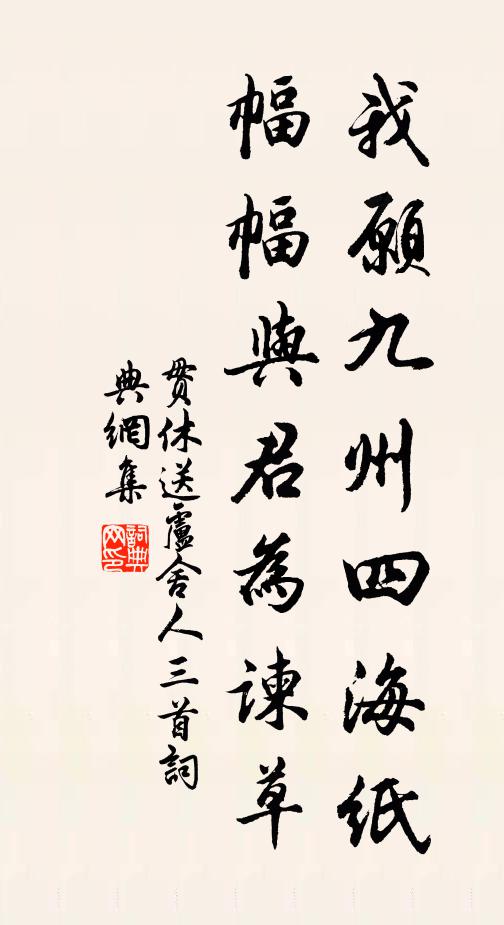 我願九州四海紙
幅幅與君為諫草
貫休送盧舍人三首詞
典網集
詞典網印